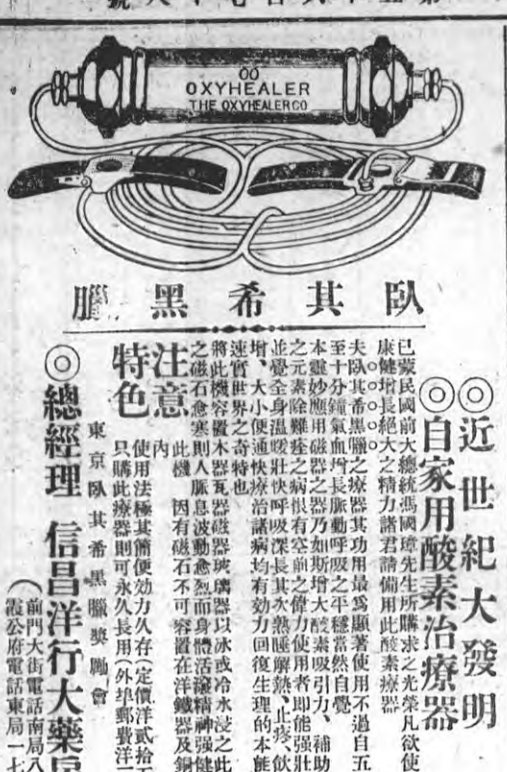 OXYHEALER
THE OXYHEALER CO
臥其希黑臘
◎近世紀大發明
◎自家用酸素治療器
已蒙民國前大總統馮國璋先生所購求之光榮凡欲使
康健增長絕大之精力諸君請備用此酸素療器
夫臥其希黑臘之療器其功用最爲顯著使用不過自五
至十分鐘氣血增長脈動呼吸之平穩當然自覺
本靈妙應用磁器之器乃如斯增大酸素吸引力、補助
之元素除難痊之病根有空前之偉力使用者即能強壯
並覺全身溫暖壯快呼吸深長其次熟睡解熱、止痰、飲
增、大小便通快療治諸病均有効力回復生理的本能
速實世界之奇特也
將此機容置木器瓦器磁器玻璃器以冰或冷水浸之此
之磁石愈寒則人脈息波動愈烈而身體活潑精神强健
注意
此機
內
因有磁石不可容置在洋鐵器及銅
特色
使用法極其簡便効力久存(定價洋貳拾
只購此療器則可永久長用(外埠郵費洋
東京臥其希黑臘獎勵會
◎總經理 信昌洋行大藥房
(前門大街電話南局八
霞公府電話東局一七